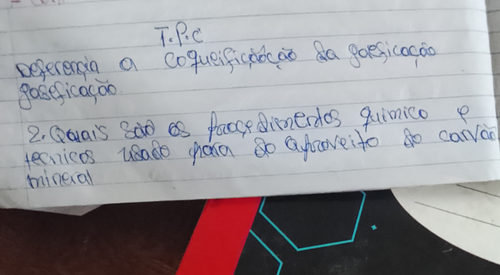 T.P.c
Deferencia a coqueificação da gaseficação
gaseficação
2. Quais são os procedimentos químico e
tecnicos usado para do aproveito do carvão
mineral